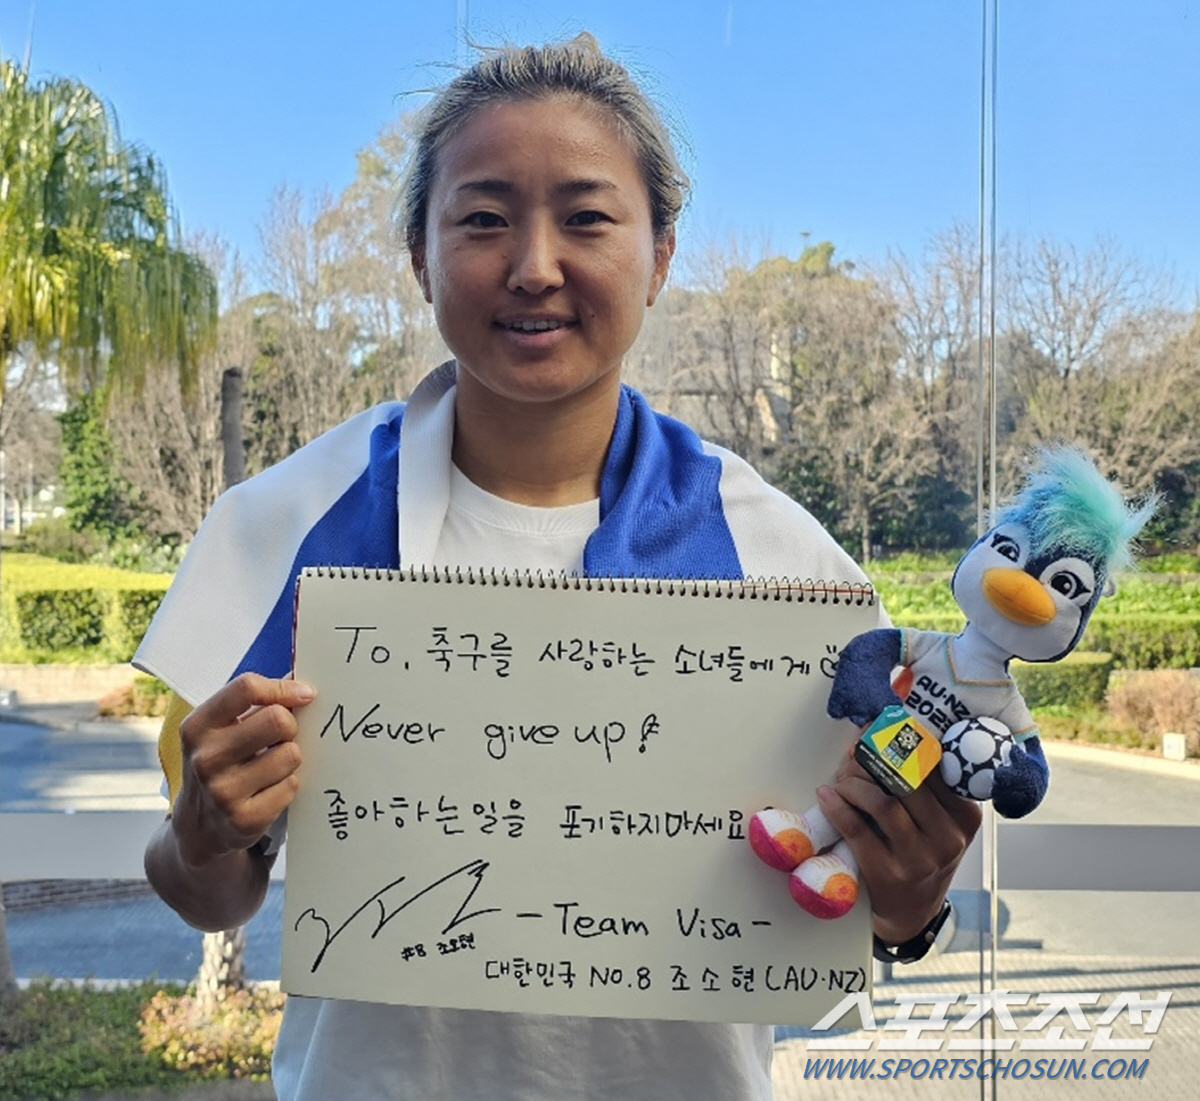 To. 축구를 사랑하는 소녀들에게
Never give up!
좋아하는 일을 포기하지마세요
#8 조소현
-Team Visa-
대한민국 NO.8 조소현 (AU·NZ)
AU·NZ
2023
스포츠조선
WWW.SPORTSCHOSUN.COM